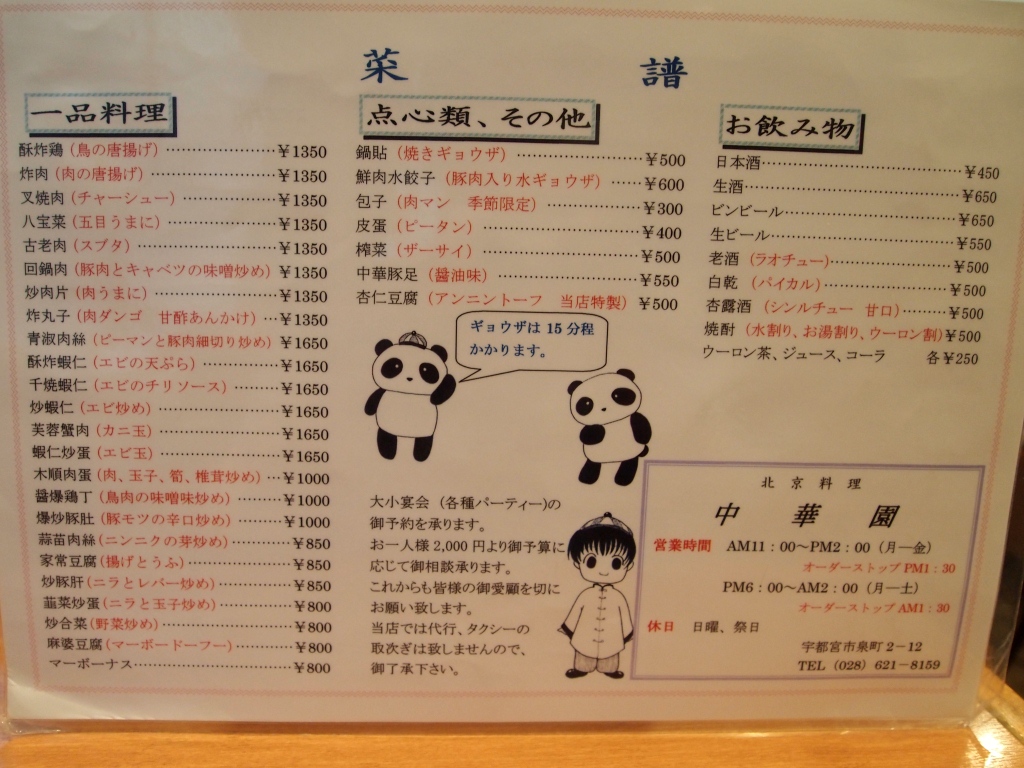 菜譜
一品料理
酥炸鶏（鳥の唐揚げ）…………………￥1350
炸肉（肉の唐揚げ）…………………￥1350
叉焼肉（チャーシュー）…………………￥1350
八宝菜（五目うまに）…………………￥1350
古老肉（スブタ）…………………￥1350
回鍋肉（豚肉とキャベツの味噌炒め）￥1350
炒肉片（肉うまに）…………………￥1350
炸丸子（肉ダンゴ　甘酢あんかけ）…￥1350
青淑肉絲（ピーマンと豚肉細切り炒め）￥1650
酥炸蝦仁（エビの天ぷら）……………￥1650
千焼蝦仁（エビのチリソース）………￥1650
炒蝦仁（エビ炒め）…………………￥1650
芙蓉蟹肉（カニ玉）…………………￥1650
蝦仁炒蛋（エビ玉）…………………￥1650
木順肉蛋（肉、玉子、筍、椎茸炒め）…￥1000
醤爆鶏丁（鳥肉の味噌味炒め）………￥1000
爆炒豚肚（豚モツの辛口炒め）………￥1000
蒜苗肉絲（ニンニクの芽炒め）………￥850
家常豆腐（揚げとうふ）………………￥850
炒豚肝（ニラとレバー炒め）…………￥850
韮菜炒蛋（ニラと玉子炒め）…………￥800
炒合菜（野菜炒め）…………………￥800
麻婆豆腐（マーボードーフー）………￥800
マーボーナス…………………………￥800
点心類、その他
鍋貼（焼きギョウザ）…………………￥500
鮮肉水餃子（豚肉入り水ギョウザ）……￥600
包子（肉マン　季節限定）……………￥300
皮蛋（ピータン）…………………￥400
榨菜（ザーサイ）…………………￥500
中華豚足（醤油味）…………………￥550
杏仁豆腐（アンニントーフ　当店特製）￥500
ギョウザは 15 分程
かかります。
大小宴会（各種パーティー）の
御予約を承ります。
お一人様 2,000 円より御予算に
応じて御相談承ります。
これからも皆様の御愛顧を切に
お願い致します。
当店では代行、タクシーの
取次ぎは致しませんので、
御了承下さい。
お飲み物
日本酒…………………………￥450
生酒……………………………￥650
ビンビール……………………￥650
生ビール………………………￥550
老酒（ラオチュー）……………￥500
白乾（パイカル）………………￥500
杏露酒（シンルチュー　甘口）…￥500
焼酎（水割り、お湯割り、ウーロン割）￥500
ウーロン茶、ジュース、コーラ　各￥250
北京料理
中華園
営業時間　AM11：00～PM2：00（月―金）
オーダーストップ PM1：30
PM6：00～AM2：00（月―土）
オーダーストップ AM1：30
休日　日曜、祭日
宇都宮市泉町 2－12
TEL（028）621－8159